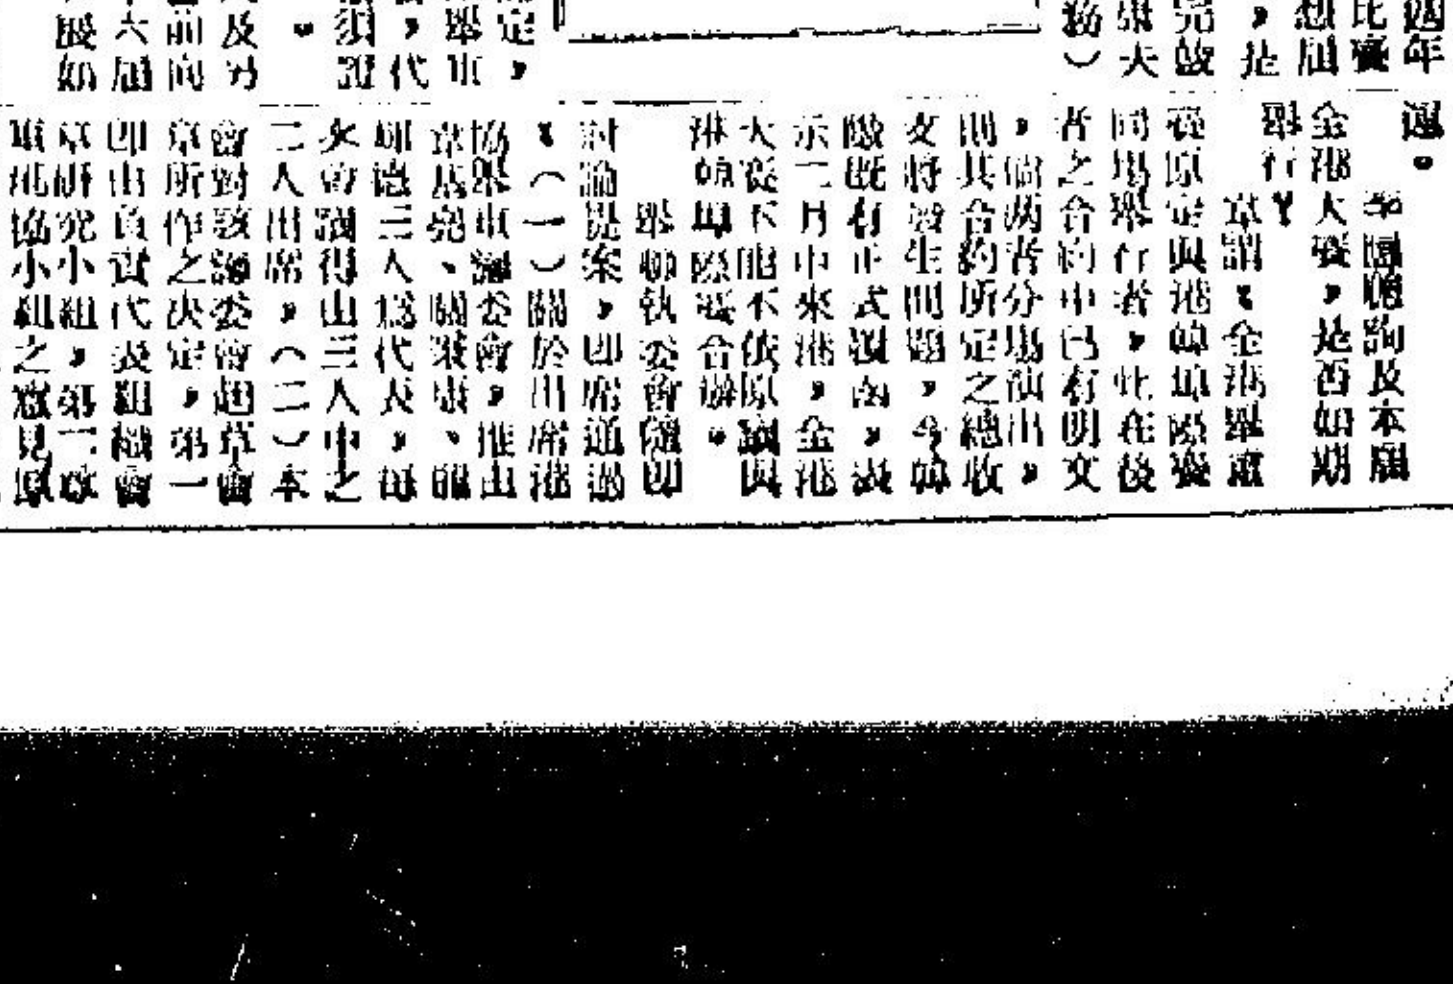 四年
比賽
想屆
，是
完
舉大
務）
定，
舉重
，代
須證
。
及另
前向
六屆
展如
運。
李國聰詢及本屆
全港大賽，是否如期
舉行？
韋謂：全港舉重
賽原定與港韓埠際賽
同場舉行者，此在後
者之合約中已有明文
，倘兩者分場演出，
則其合約所定之總收
支將發生問題，今韓
隊既有正式覆函，表
示二月中來港，全港
大賽不能不依原議與
港韓埠際賽合辦。
舉聯執委會隨即
討論提案，即席通過
：（一）關於出席港
協舉重議委會，推由
韋基堯、關秉康、
德三人為代表，每
次會議得由三人中之
二人出席。（二）本
會對該議委會起草會
章所作之決定，第一
即由負責代表組織會
章研究小組，第二
重港協小組之意見原